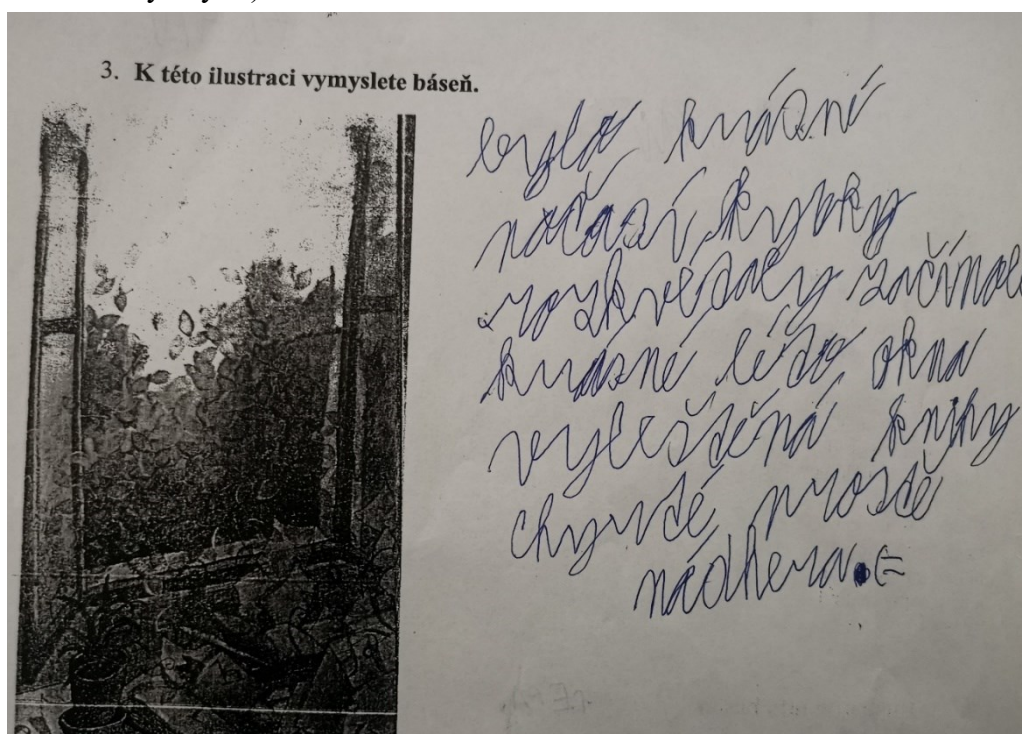 3. K této ilustraci vymyslete báseň.
bylo krásné
počasí kytky
rozkvétaly začínalo
krásné léto okna
vyleštěná knihy
chytré prostě
nádhera.